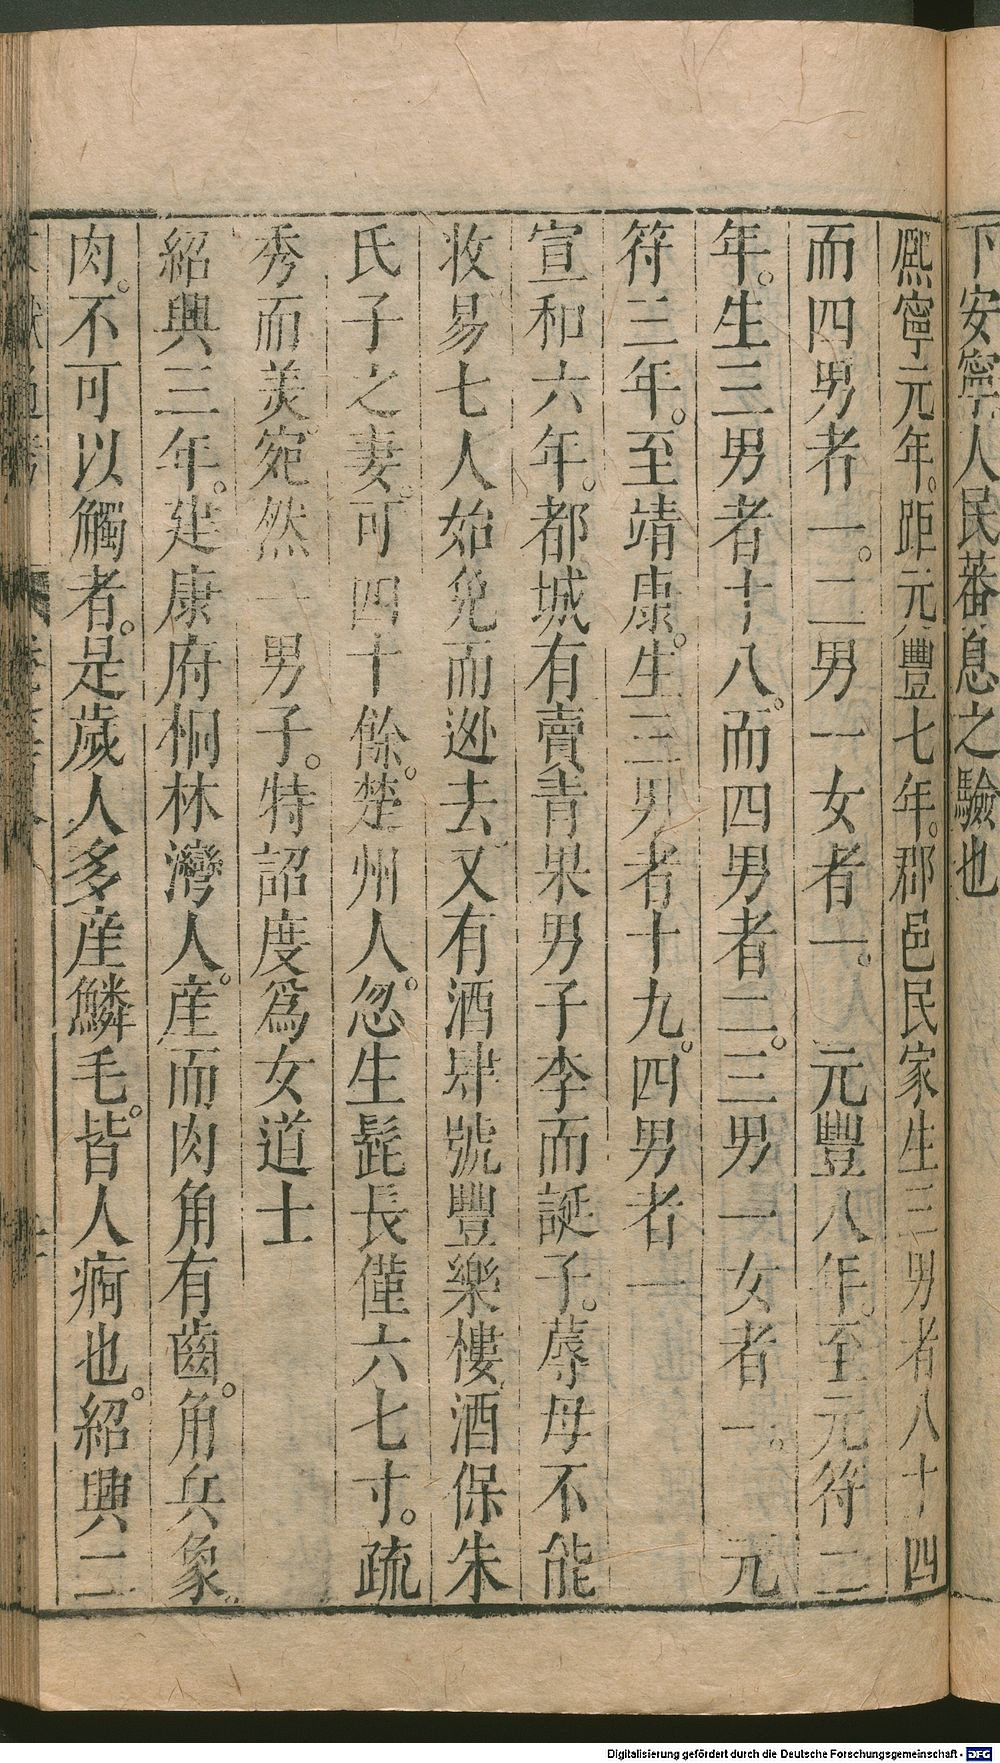 下安寧人民蕃息之驗也
熙寧元年。距元豐七年。郡邑民家生三男者八十四
而四男者一。二男一女者一。　元豐八年。至元符二
年。生三男者十八。而四男者二。三男一女者一。　元
符三年。至靖康。生三男者十九。四男者一
宣和六年。都城有賣青果男子孕而誕子。蓐母不能
收易七人始免而逃去又有酒肆號豐樂樓酒保朱
氏子之妻。可四十餘。楚州人。忽生髭長僅六七寸。疏
秀而美。宛然一男子。特詔度為女道士
紹興三年。建康府桐林灣人。産而肉角有齒。角兵象
肉。不可以觸者。是歲人多産鱗毛。皆人痾也。紹興二
Digitalisierung gefördert durch die Deutsche Forschungsgemeinschaft - DFG